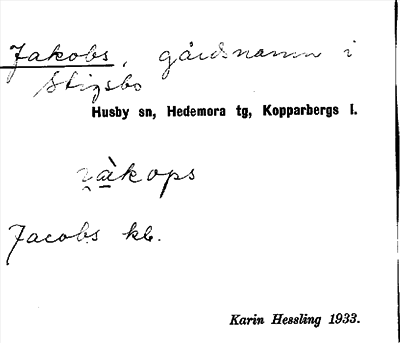 Jakobs, gårdsnamn i
Stigsbo
Husby sn, Hedemora tg, Kopparbergs l.
i̯àkops
Jacobs kb.
Karin Hessling 1933.